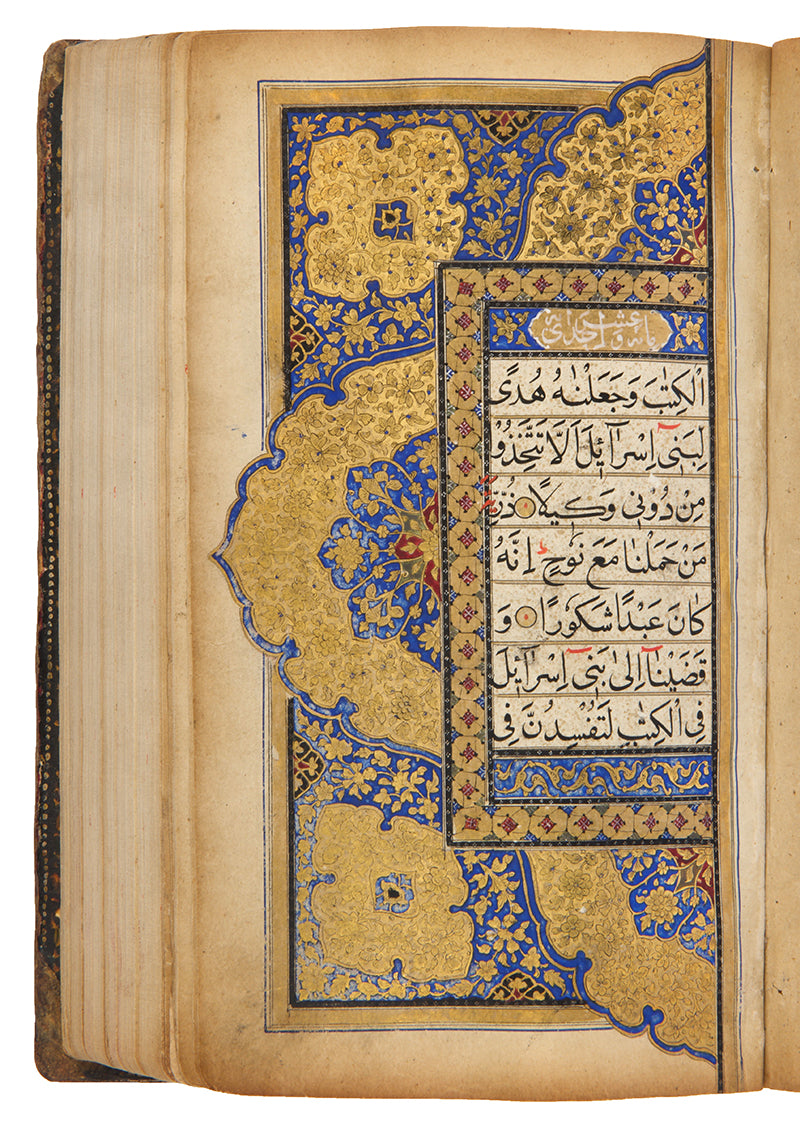 مایه و احدی عشر ایه
الْكِتٰبَ وَجَعَلْنٰهُ هُدًى
لِبَنِىٓ اِسْرَآئِلَ اَلَّا تَتَّخِذُوْا
مِنْ دُوْنِى وَكِيلًا ذُرِّيَّةَ
مَنْ حَمَلْنَا مَعَ نُوْحٍ اِنَّهُ
كَانَ عَبْدًا شَكُورًا وَ
قَضَيْنَآ اِلٰى بَنِىٓ اِسْرَآئِلَ
فِى الْكِتٰبِ لَتُفْسِدُنَّ فِى